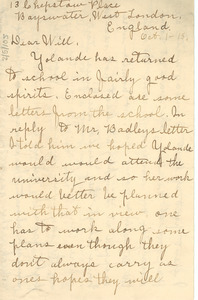 13 Chepstow Place
Bayswater, West London,
England
Oct. 1
Dear Will,
Yolande has returned
to school in fairly good
spirits. Enclosed are some
letters from the school. In
reply to Mr. Badley's letter
I told him we hoped Yolande
would would attend the
university and so her work
would better be planned
with that in view one
has to work along some
plans even though they
don't always carry as
one's hopes they will